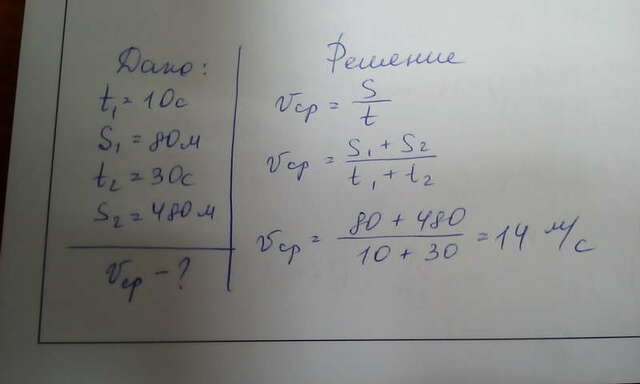 Дано:
t₁ = 10с
S₁ = 80м
t₂ = 30с
S₂ = 480м
Vср - ?
Решение
Vср = S/t
Vср = (S₁ + S₂)/(t₁ + t₂)
Vср = (80 + 480)/(10 + 30) = 14 м/с